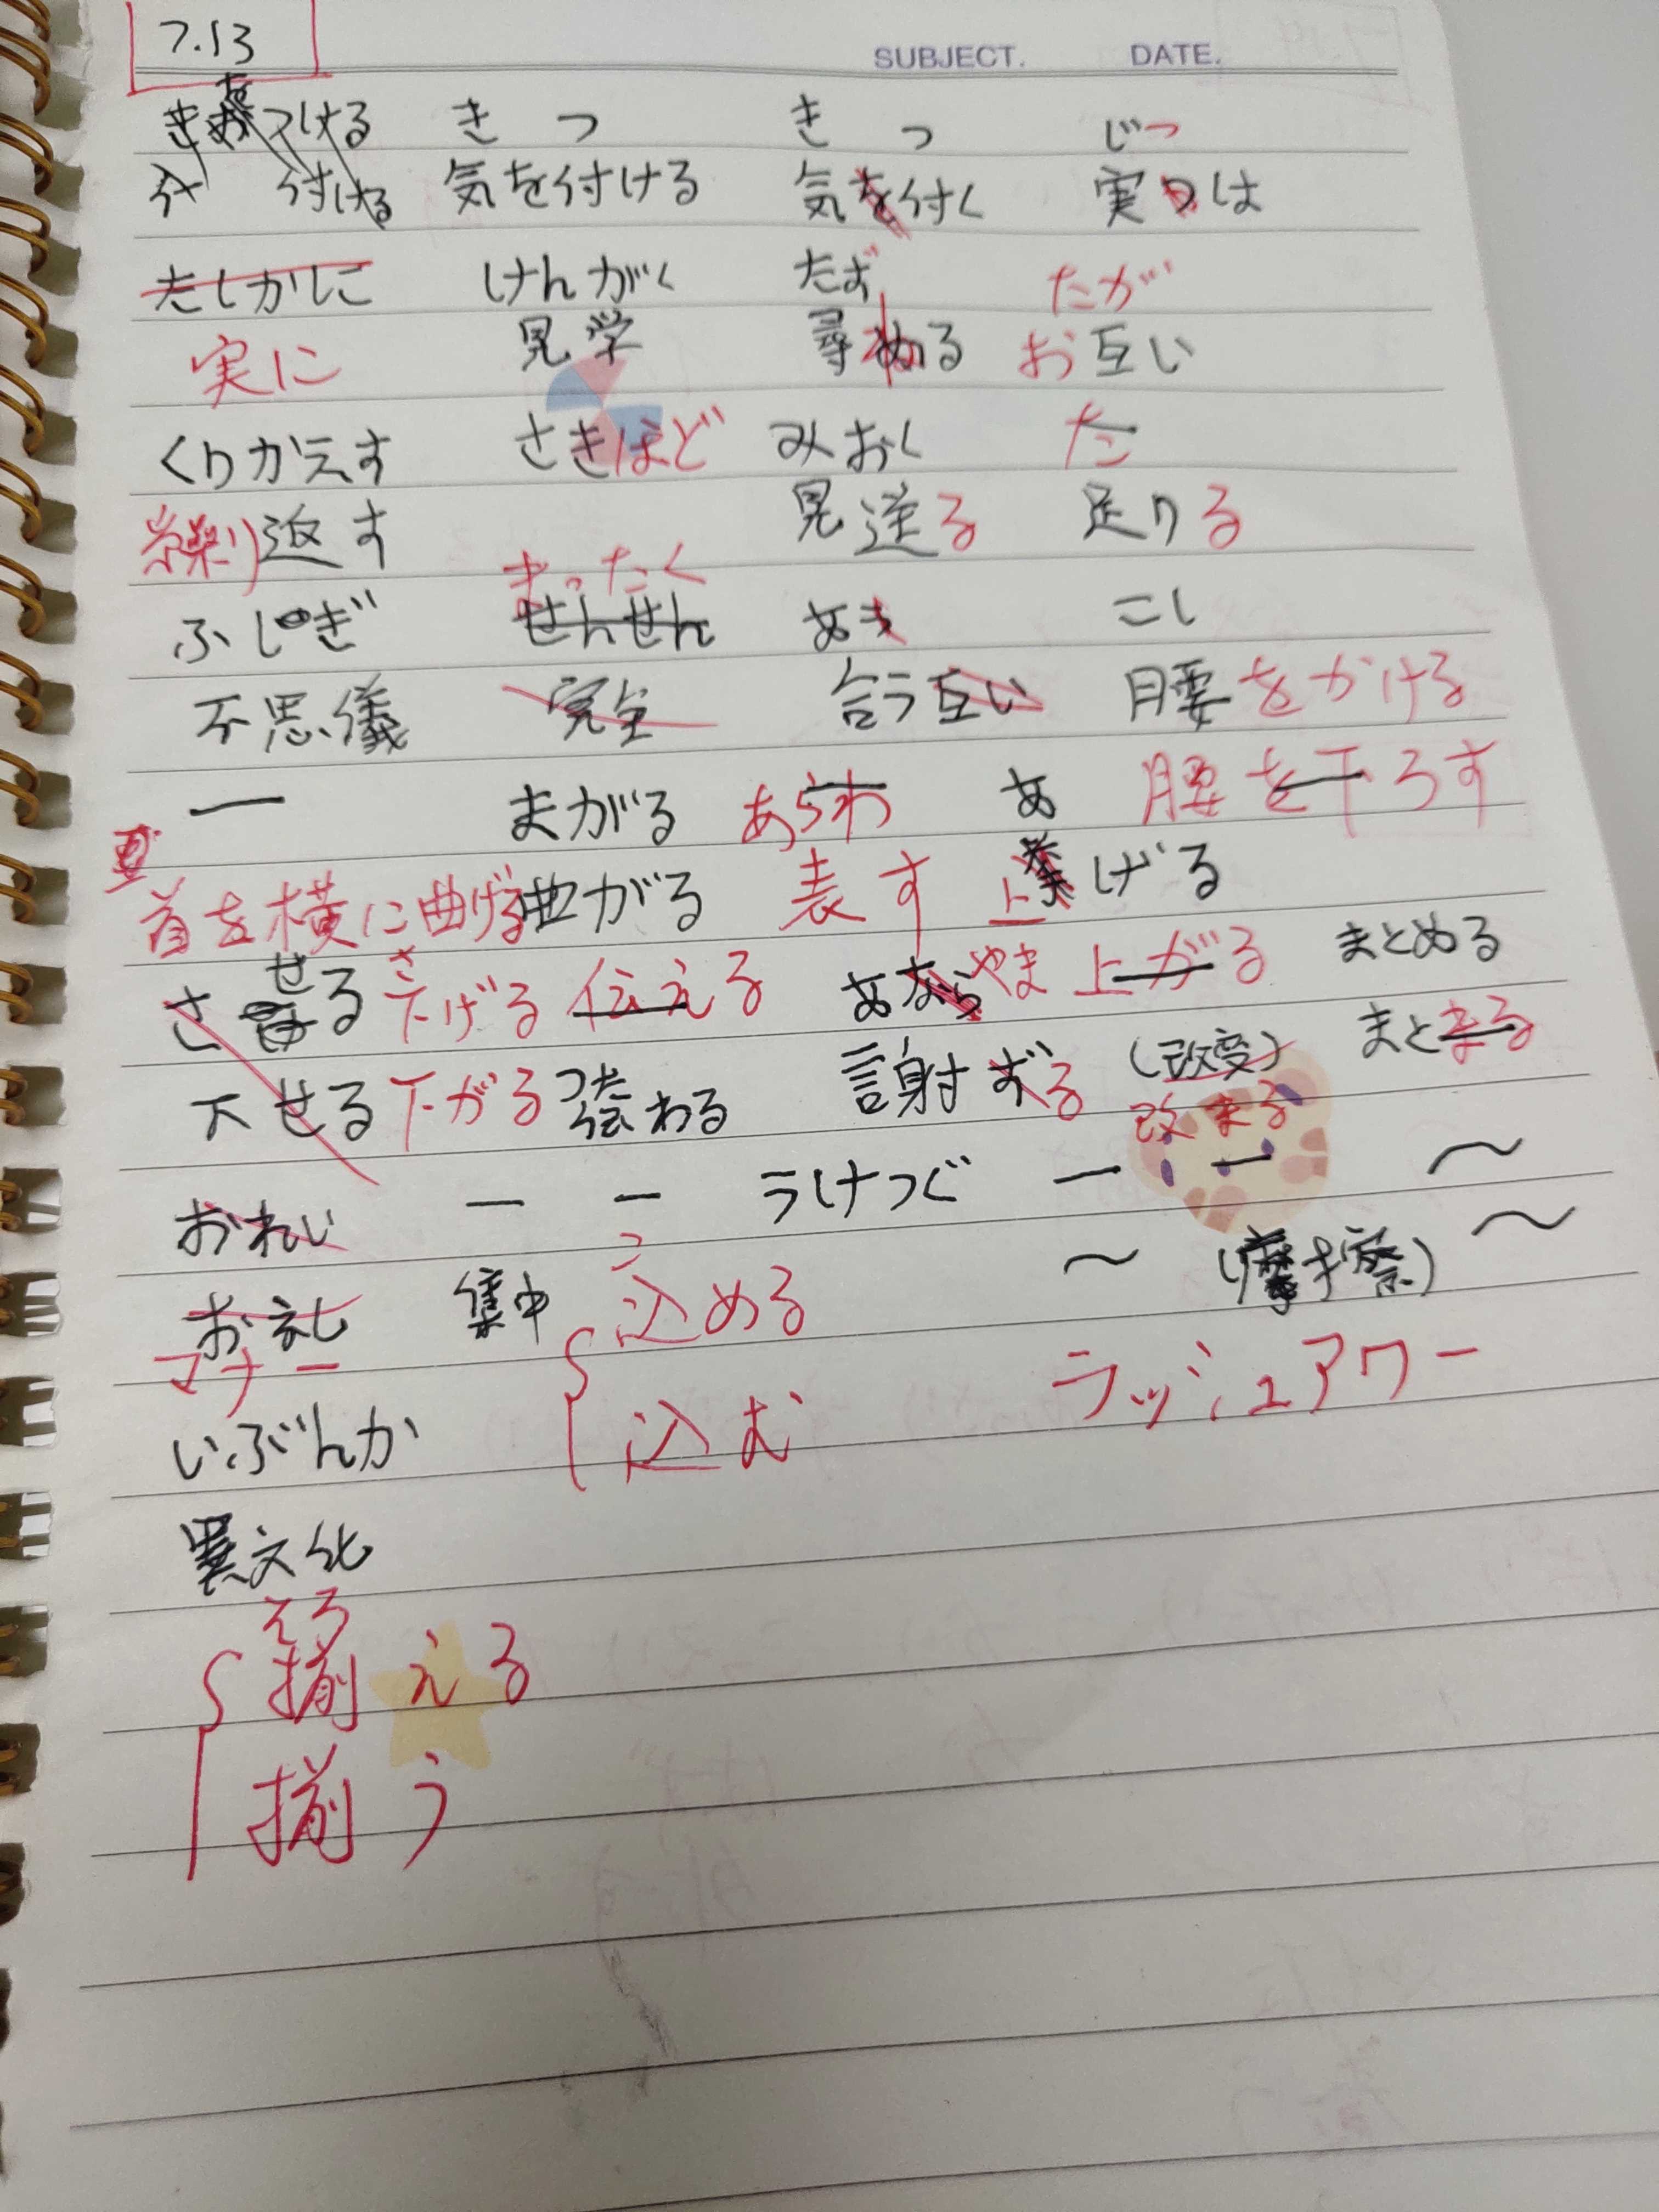 7.13
SUBJECT. DATE.
きをつける きつ きつ じつ
付ける 気を付ける 気を付く 実つは
たしかに けんがく たず たが
実に 見学 尋ねる お互い
くりかえす さきほど みおく た
繰り返す 見送る 足りる
まったく
ふしぎ ぜんぜん あ こし
不思儀 完全 合う互い 腰をかける
一 まがる あらわ あ 腰を下ろす
首を横に曲げる 曲がる 表す 上げる
させる 下げる 伝える あやま 上がる まとめる
下せる 下がる 伝わる 謝する (改变) まとまる
改まる
おれい 一 一 うけつぐ 一 一 〜
こ
お礼 集中 込める 〜 (摩擦) 〜
マナー ラッシュアワー
いぶんか 込む
異文化
そろ
揃える
揃う